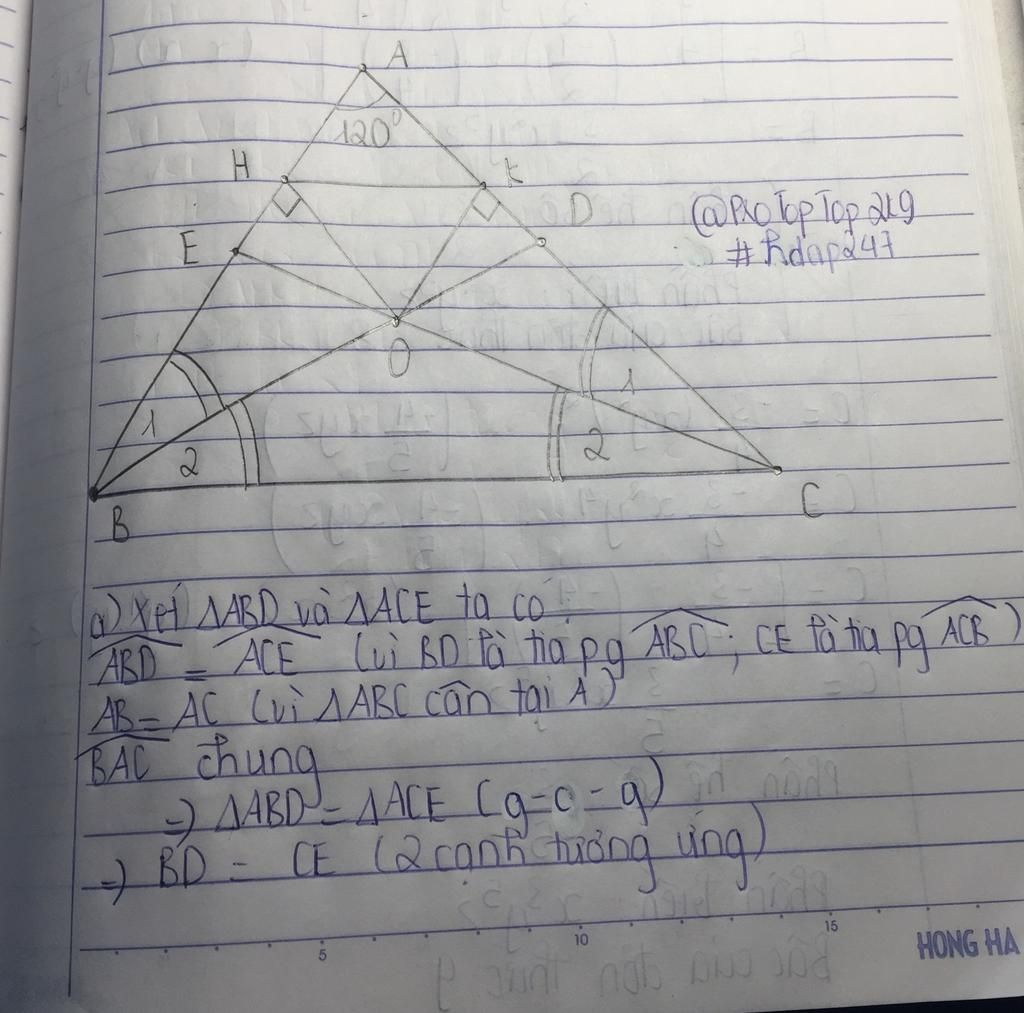 A
120°
H
K
D
@ProTopTop2k9
E
#hdap247
O
1
1
2
2
B
C
a) Xét ΔABD và ΔACE ta có:
ABD = ACE (vì BD là tia pg ABC; CE là tia pg ACB)
AB = AC (vì ΔABC cân tại A)
BAC chung
=) ΔABD = ΔACE (g-c-g)
=) BD = CE (2 cạnh tương ứng)
5
10
15
HONG HA